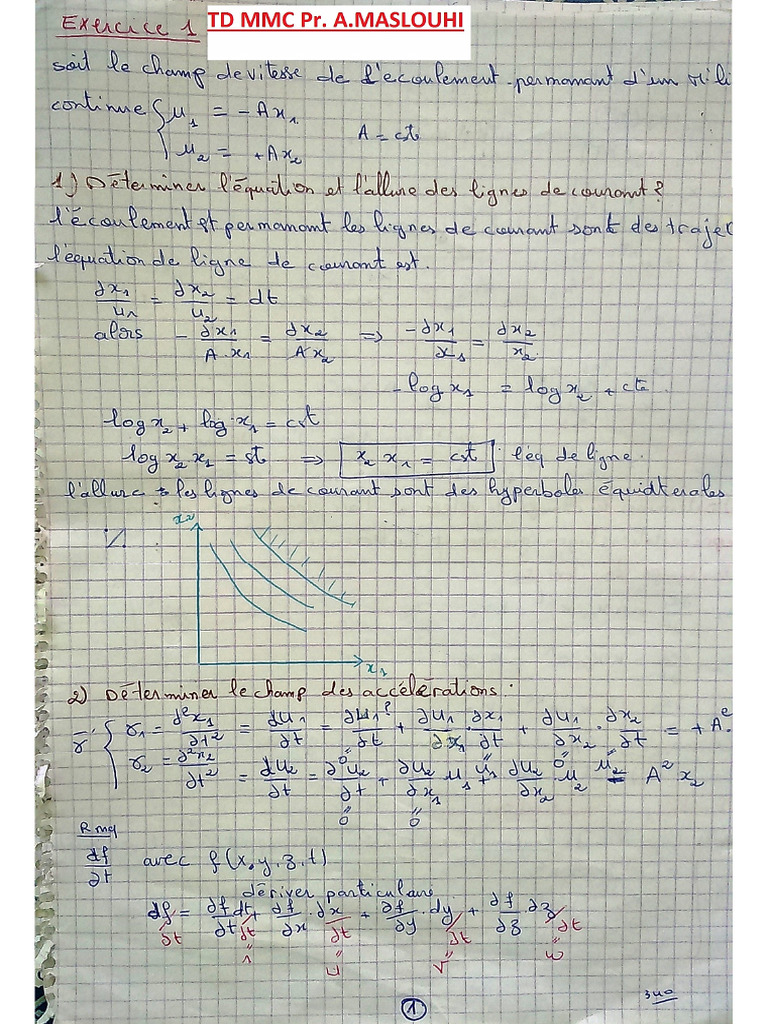 Exercice 1 TD MMC Pr. A.MASLOUHI
soit le champ de vitesse de l'ecoulement permanant d'un mili
continue { u₁ = -Ax₁
u₂ = +Ax₂ A = cst
1) Déterminer l'équation et l'allure des lignes de courant?
l'écoulement est permanant les lignes de courant sont des trajec
l'équation de ligne de courant est.
∂x₁/u₁ = ∂x₂/u₂ = dt
alors -∂x₁/A.x₁ = ∂x₂/Ax₂ ⇒ -∂x₁/x₁ = ∂x₂/x₂.
-log x₁ = log x₂ + cte
log x₂ + log x₁ = cst
log x₂ x₁ = st ⇒ x₂ x₁ = cst : l'éq de ligne.
l'allure : les lignes de courant sont des hyperboles équidterales
x₂
x₁
2) Déterminer le champ des accélérations :
γ⃗ { γ₁ = d²x₁/∂t² = du₁/∂t = ∂u₁/∂t + ∂u₁/∂x₁ . ∂x₁/∂t + ∂u₁/∂x₂ . ∂x₂/∂t = + A²
0 u₁ 0 u₂
γ₂ = ∂²x₂/∂t² = du₂/∂t = ∂u₂/∂t + ∂u₂/∂x₁ u₁ + ∂u₂/∂x₂ . u₂ = A² x₂
0 0
Rmq
df/∂t avec f(x,y,z,t)
dériver particulaire
df/∂t = ∂f/∂t dt/∂t + ∂f/∂x . ∂x/∂t + ∂f/∂y . dy/∂t + ∂f/∂z . ∂z/∂t
1 u v w
1